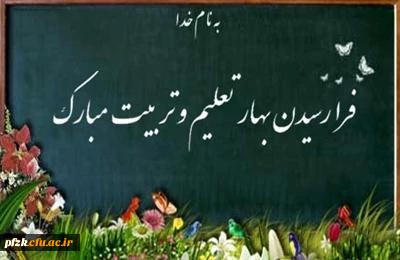 به نام خدا
فرا رسیدن بهار تعلیم و تربیت مبارک
pfzk.cfu.ac.ir